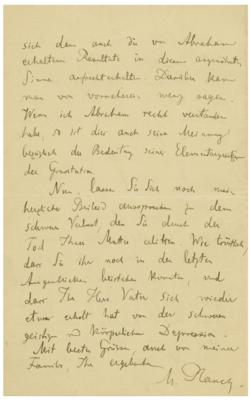 sich dann auch die von Abraham
erhaltenen Resultate in diesem
Sinne aufrecht erhalten. Darüber kann
man von vornherein wenig sagen.
Wenn ich Abraham recht verstanden
habe, so ist dies auch seine Meinung
bezüglich der Bedeutung seiner
der Gravitation.
Nun lassen Sie Sich noch mein
herzliches Beileid aussprechen zu dem
schweren Verlust, den Sie durch den
Tod Ihrer Mutter erlitten. Wie tröstlich,
dass Sie ihr noch in den letzten
Augenblicken beistehen konnten, und
dass Ihr Herr Vater sich wieder
etwas erholt hat von der schweren
geistigen und körperlichen Depression.
Mit besten Grüssen, auch von meiner
Familie, Ihr ergebenster
M. Planck.